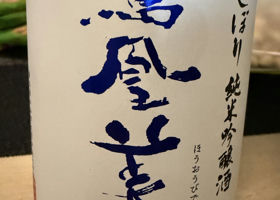 しぼり 純米吟醸酒
ほうおうび
鳳凰美